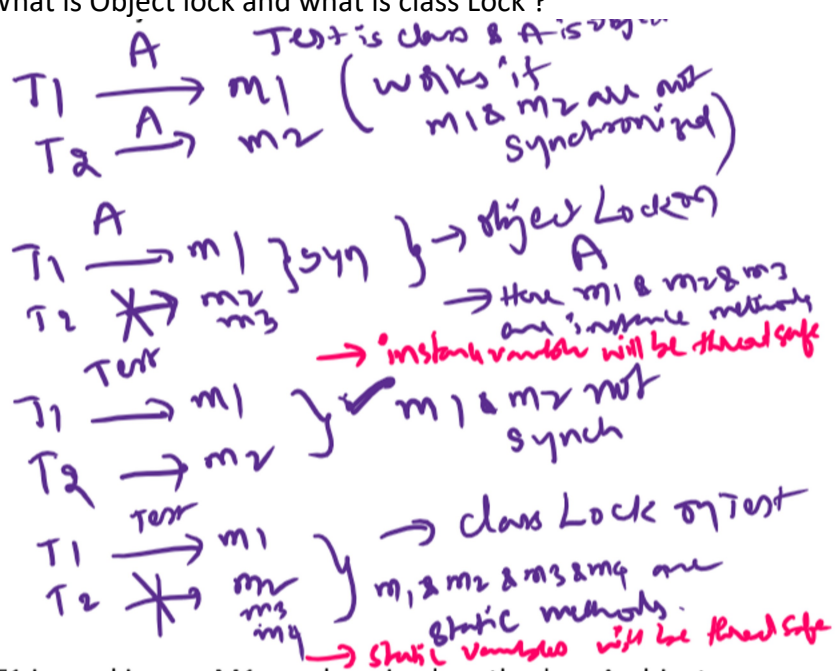 What is Object lock and what is class Lock ?
A Test is class & A is
T1 → m1 (works if
m1 & m2 are not
T2 A → m2 synchronized)
A → object Lock on
T1 → m1 } syn } A
T2 → m2 → Here m1 & m2 & m3
m3 are instance methods
→ instance variables will be thread safe
Test
T1 → m1 } ✓ m1 & m2 not
synch
T2 → m2
Test → class Lock on Test
T1 → m1 }
T2 → m2 m1 & m2 & m3 & m4 are
m3 static methods.
m4 → static variables will be thread safe